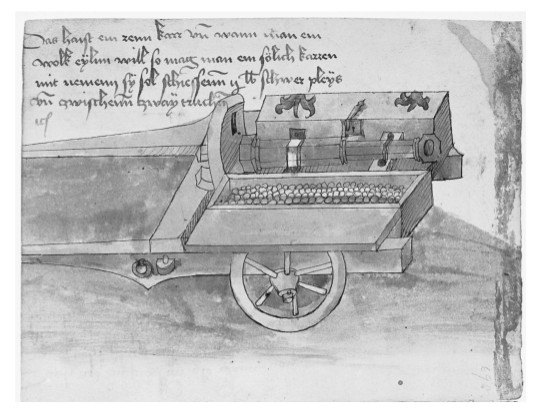 Das haist ein renn karr vn̄ wann man ein
volk eylen will so mag man ein sölich karren
mit nemenn sy sol schiessenn ij lb schwer pleys
vn̄ zwischenn zway